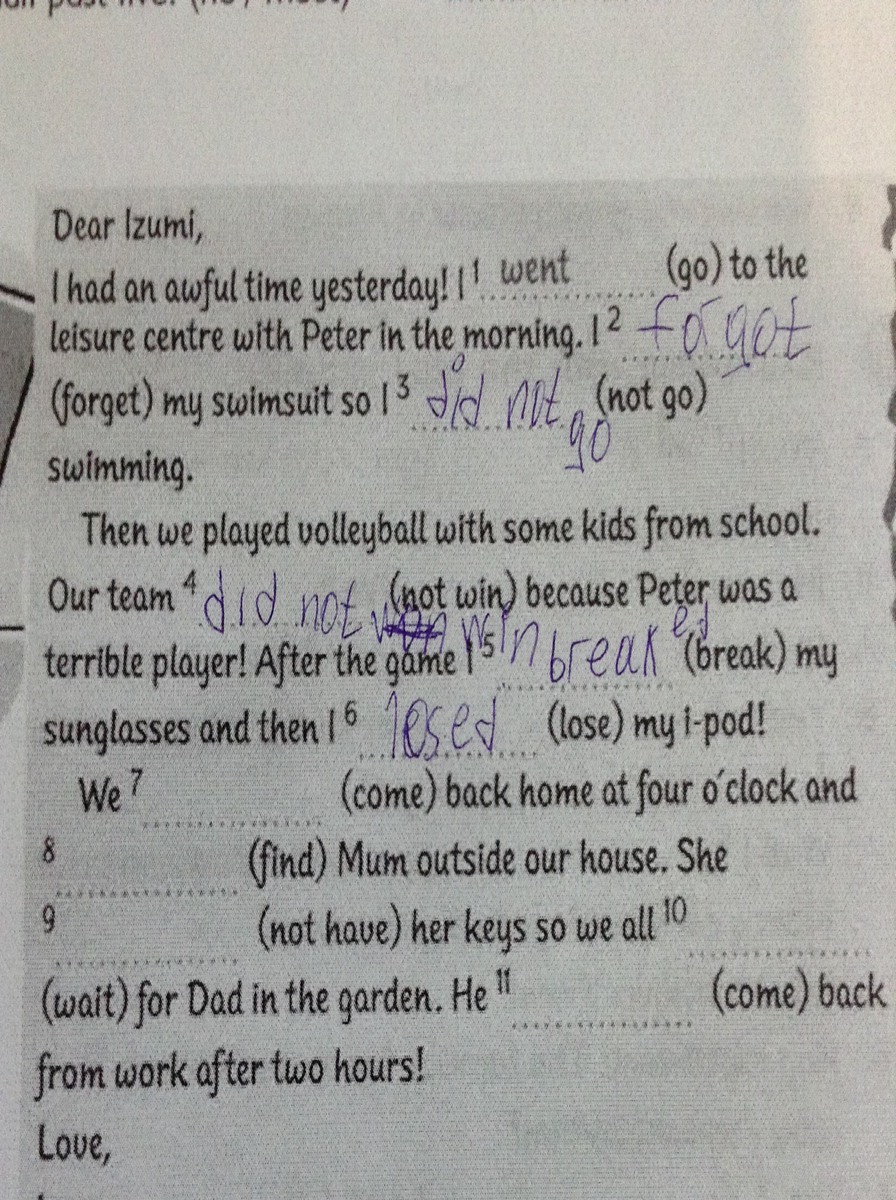 Dear Izumi,
I had an awful time yesterday! I 1 went (go) to the
leisure centre with Peter in the morning. I 2 forgot
(forget) my swimsuit so I 3 did not go (not go)
swimming.
Then we played volleyball with some kids from school.
Our team 4 did not win (not win) because Peter was a
terrible player! After the game I 5 breaked (break) my
sunglasses and then I 6 losed (lose) my i-pod!
We 7 (come) back home at four o'clock and
8 (find) Mum outside our house. She
9 (not have) her keys so we all 10
(wait) for Dad in the garden. He 11 (come) back
from work after two hours!
Love,